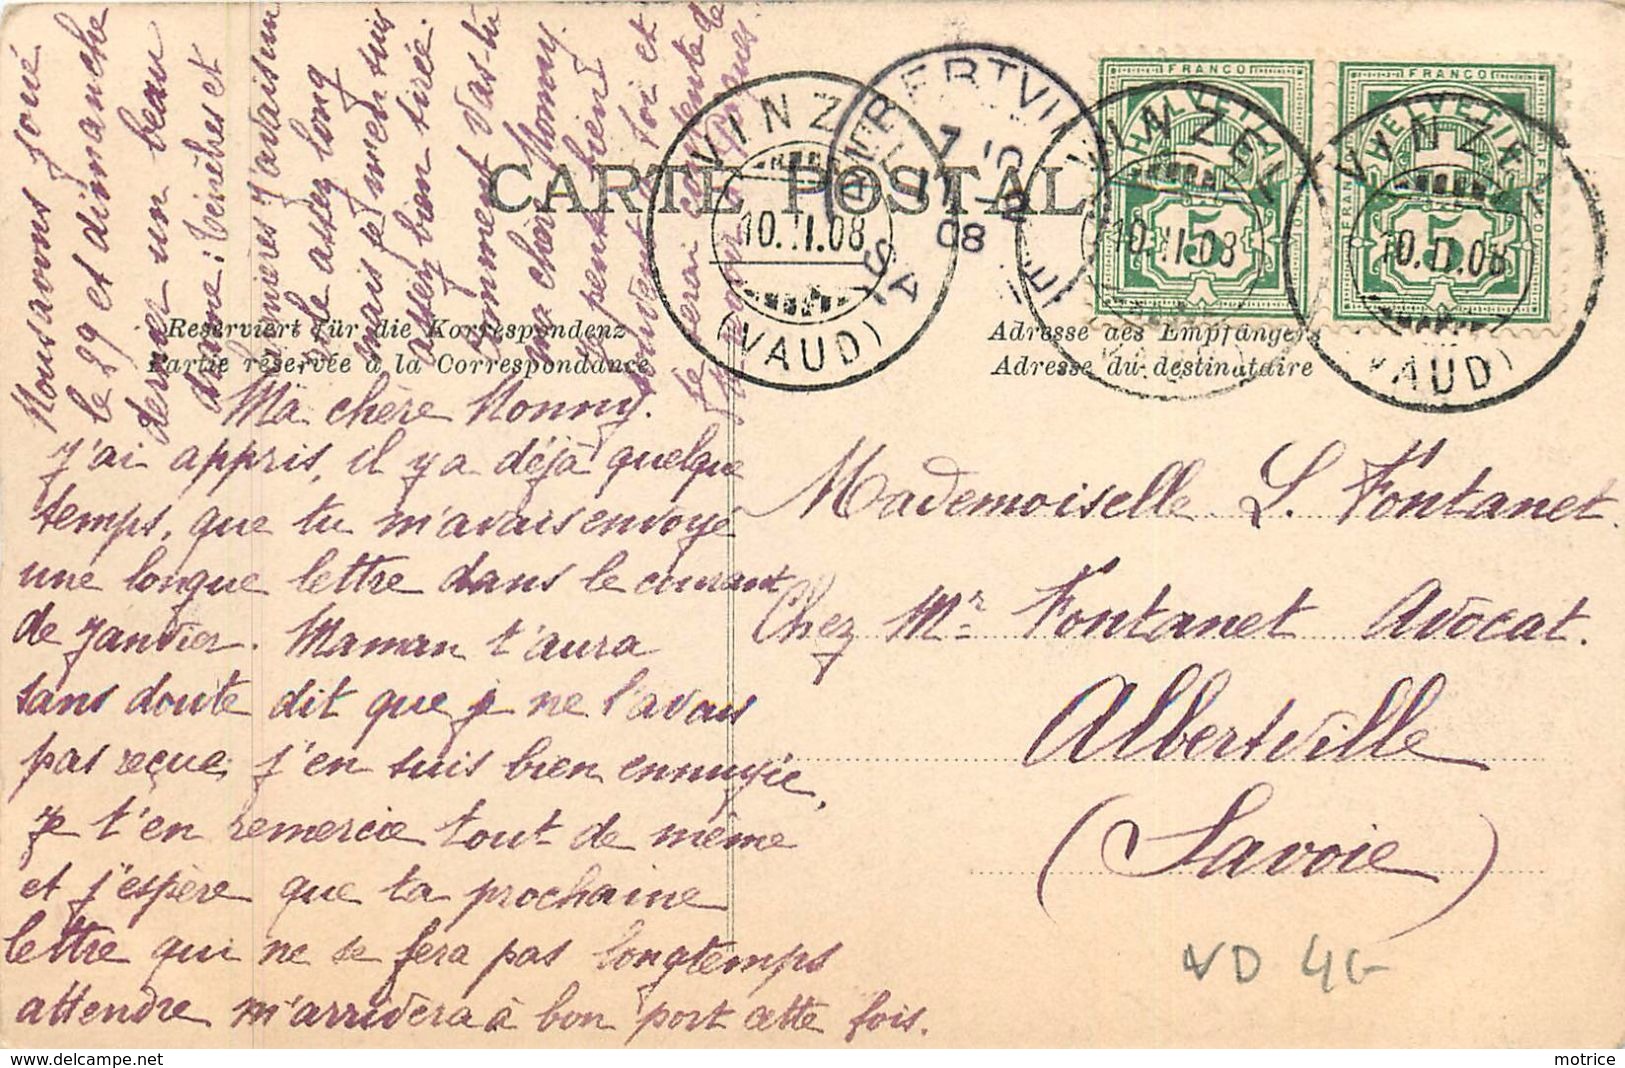 CARTE POSTALE
Reserviert für die Korrespondenz
Partie réservée à la Correspondance
Adresse des Empfängers
Adresse du destinataire
Ma chère Nonny.
J'ai appris, il y a déjà quelque
temps, que tu m'avais envoyé
une longue lettre dans le courant
de Janvier. Maman t'aura
sans doute dit que je ne l'avais
pas reçue, j'en suis bien ennuyée,
Je t'en remercie tout de même
et j'espère que ta prochaine
lettre qui ne se fera pas longtemps
attendre m'arrivera à bon port cette fois.
Nous avons joué
le 29 et dimanche
dernier un beau
drame: et
J'avais un
rôle assez long
mais je m'en suis
assez bien tirée.
Comment vas-tu
ma chère Nonny.
pense bien à
toi et
Mademoiselle L. Fontanet.
Chez Mr Fontanet Avocat.
Albertville
(Savoie)
VINZEL
10.II.08
(VAUD)
ALBERTVILLE
11-2
08
SAVOIE
FRANCO
HELVETIA
5
VINZEL
10.II.08
FRANCO
HELVETIA
5
VINZEL
10.II.08
(VAUD)
VD 4G-
motrice